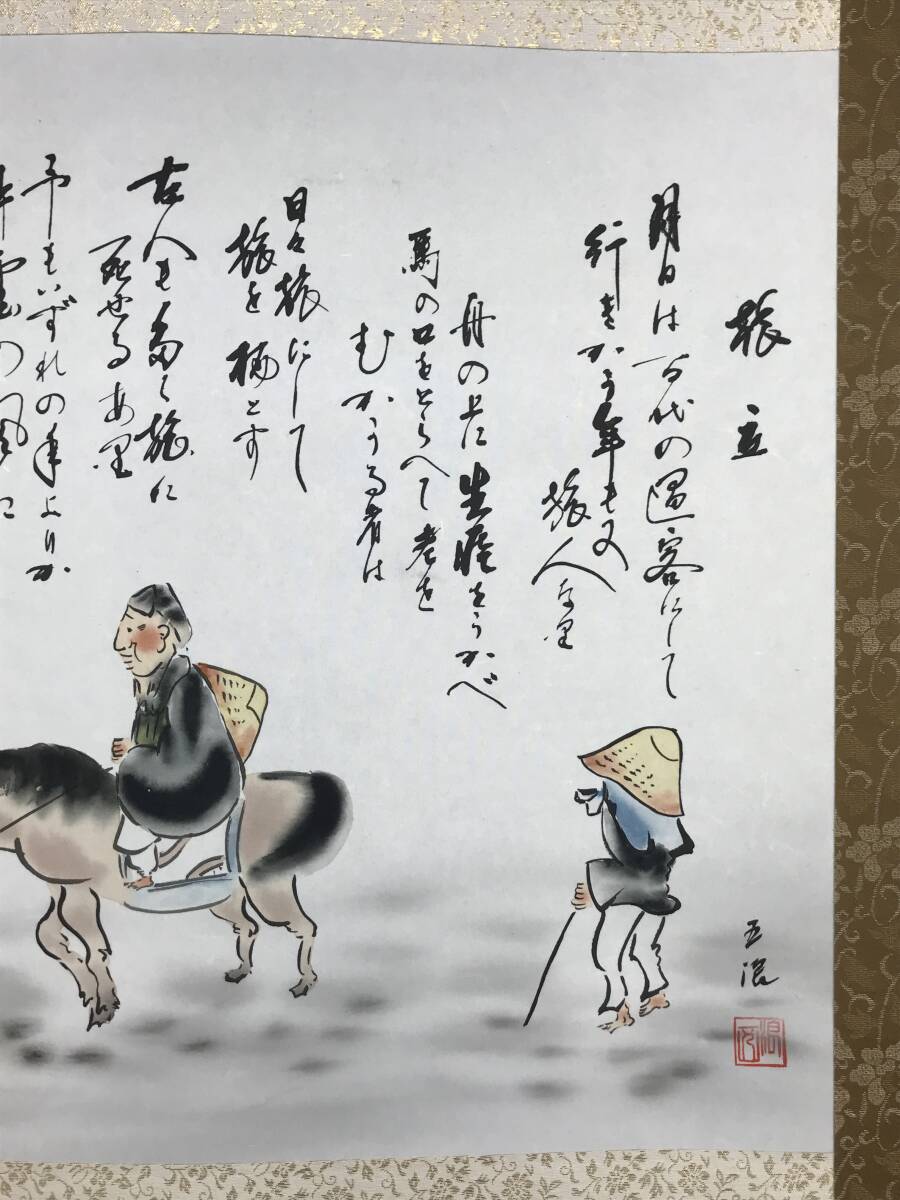 旅立
月日は百代の過客にして
行きかう年も又
旅人な里
舟の上に生涯をうかべ
馬の口をとらへて老を
むかうる者は
日々旅にして
旅を栖とす
古人も多く旅に
死せるあ里
予もいずれの年よりか
片雲の風に
五浪